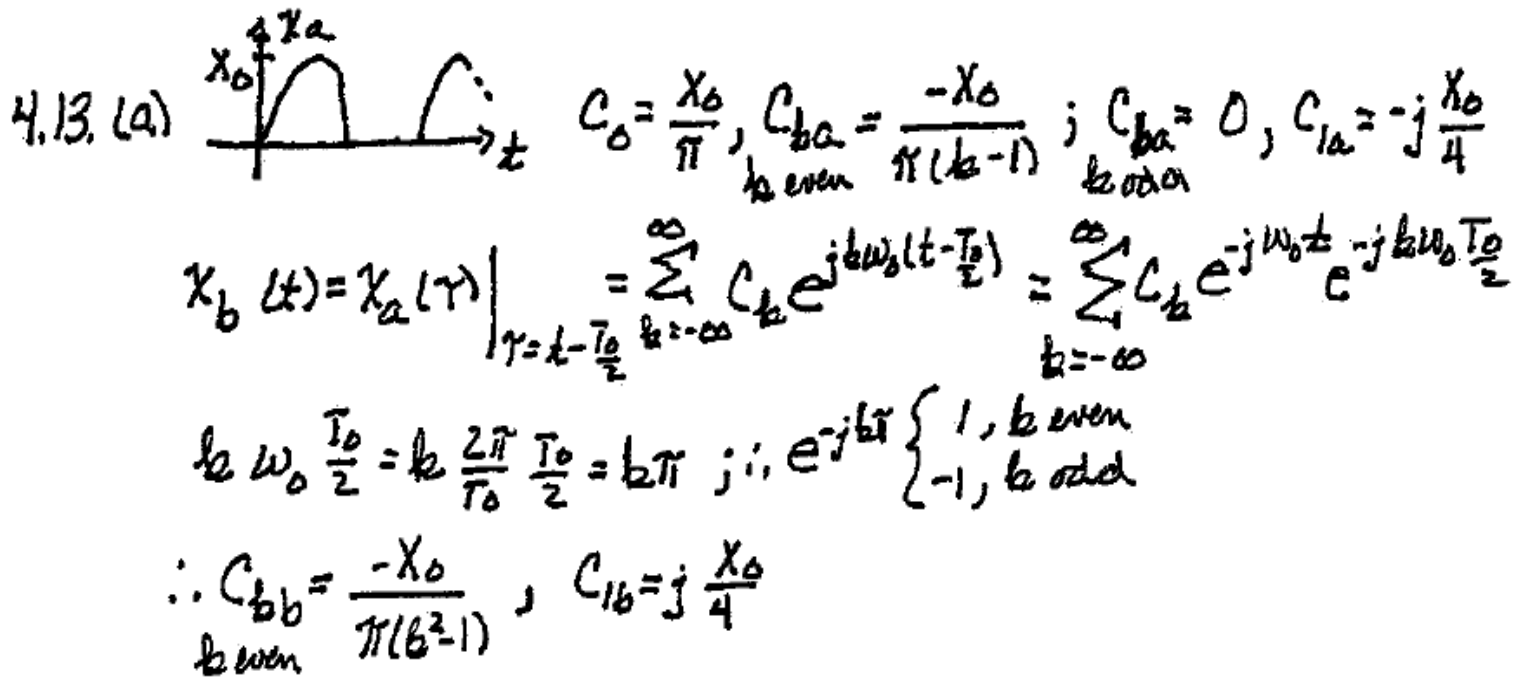 4.13. (a) X₀ xₐ t C₀ = X₀/π, C_ka = -X₀/π(k-1) ; C_ka = 0, C_1a = -j X₀/4
k even k odd
x_b (t) = x_a (τ)|_{τ = t - T₀/2} = Σ_{k=-∞}^{∞} C_k e^{jkω₀(t - T₀/2)} = Σ_{k=-∞}^{∞} C_k e^{-jω₀t} e^{-jkω₀ T₀/2}
k ω₀ T₀/2 = k 2π/T₀ T₀/2 = kπ ; ∴ e^{-jkπ} { 1, k even
-1, k odd
∴ C_kb = -X₀/π(k²-1) , C_1b = j X₀/4
k even